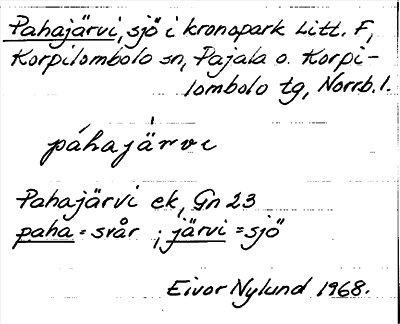 Pahajärvi, sjö i kronopark Litt. F,
Korpilombolo sn, Pajala o. Korpi-
lombolo tg, Norrb. l.
páhajä̍rvi
Pahajärvi ek, Gn 23
paha = svår ; järvi = sjö
Eivor Nylund 1968.